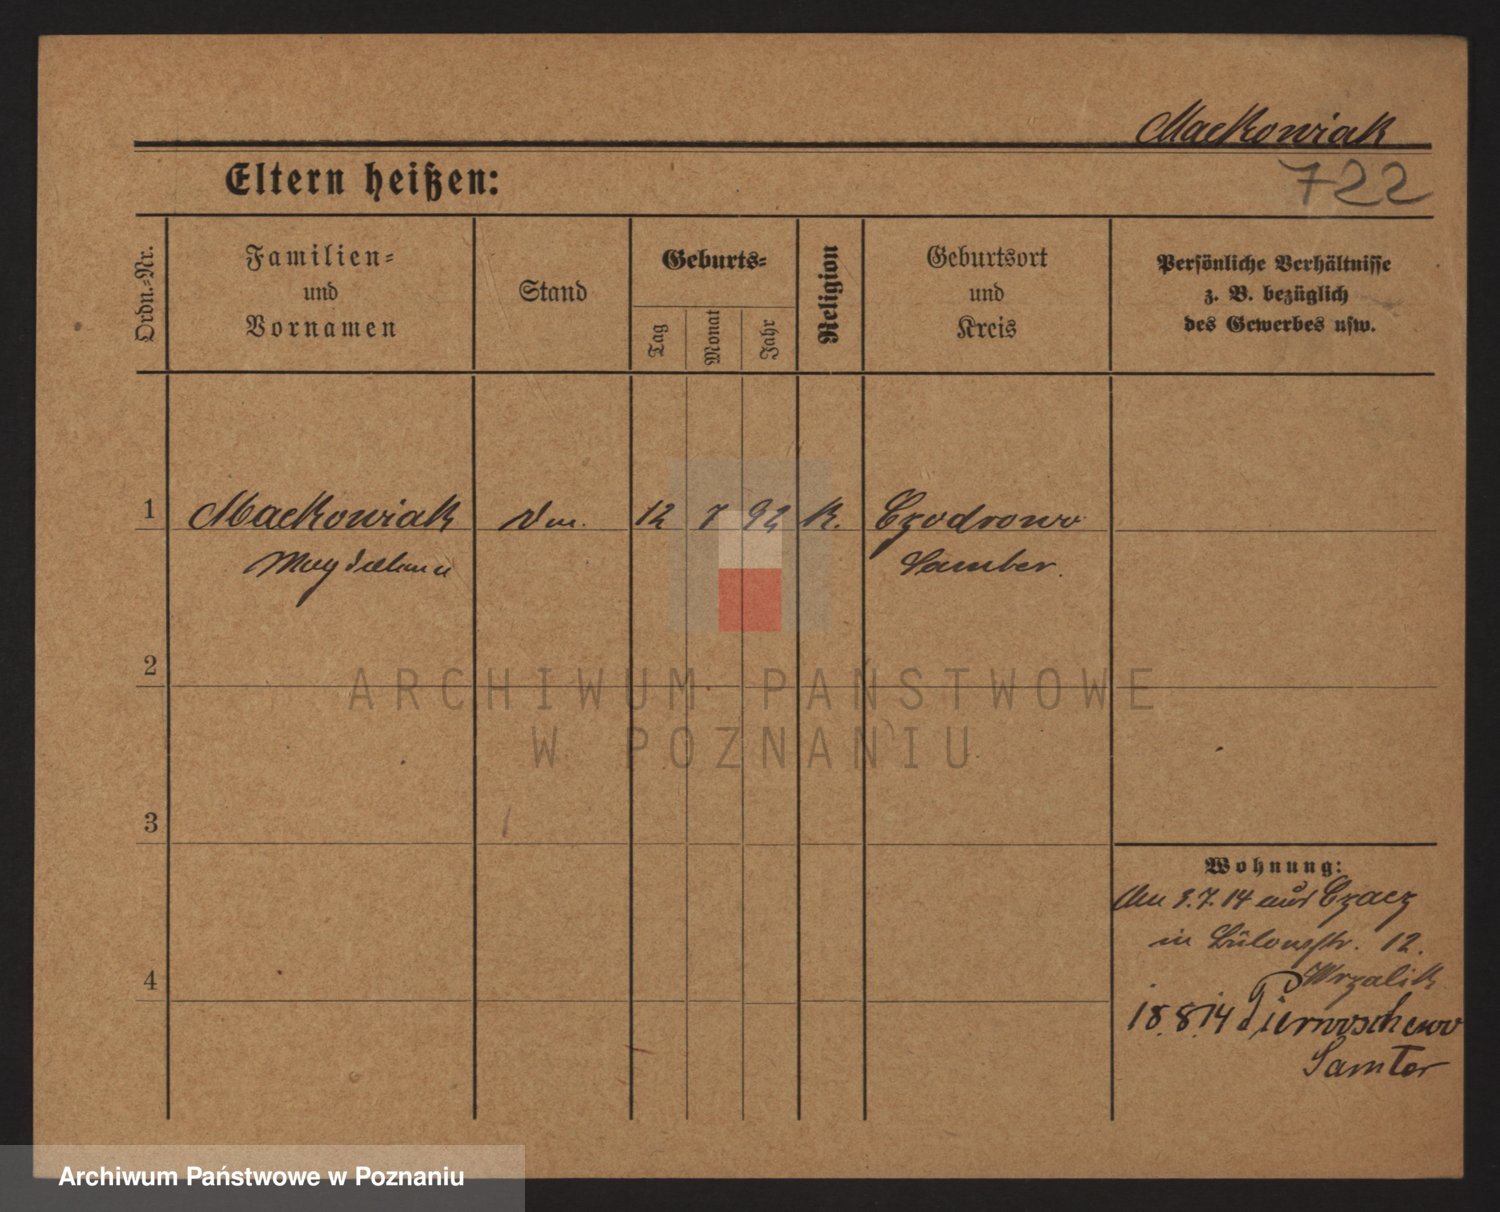 Mackowiak
722
Eltern heißen:
Ordn.-Nr.
Familien- und Vornamen
Stand
Geburts-
Tag
Monat
Jahr
Religion
Geburtsort und Kreis
Persönliche Verhältnisse
z. B. bezüglich
des Gewerbes usw.
1 Mackowiak 12 7 92 K. Czodrowo
Magdalena Samter.
2
ARCHIWUM PAŃSTWOWE
W POZNANIU
3
Wohnung:
14 aus Czacz
in Bülowstr. 12.
Wrzalik
4
18.8.14 Pierwoschewo
Samter
Archiwum Państwowe w Poznaniu